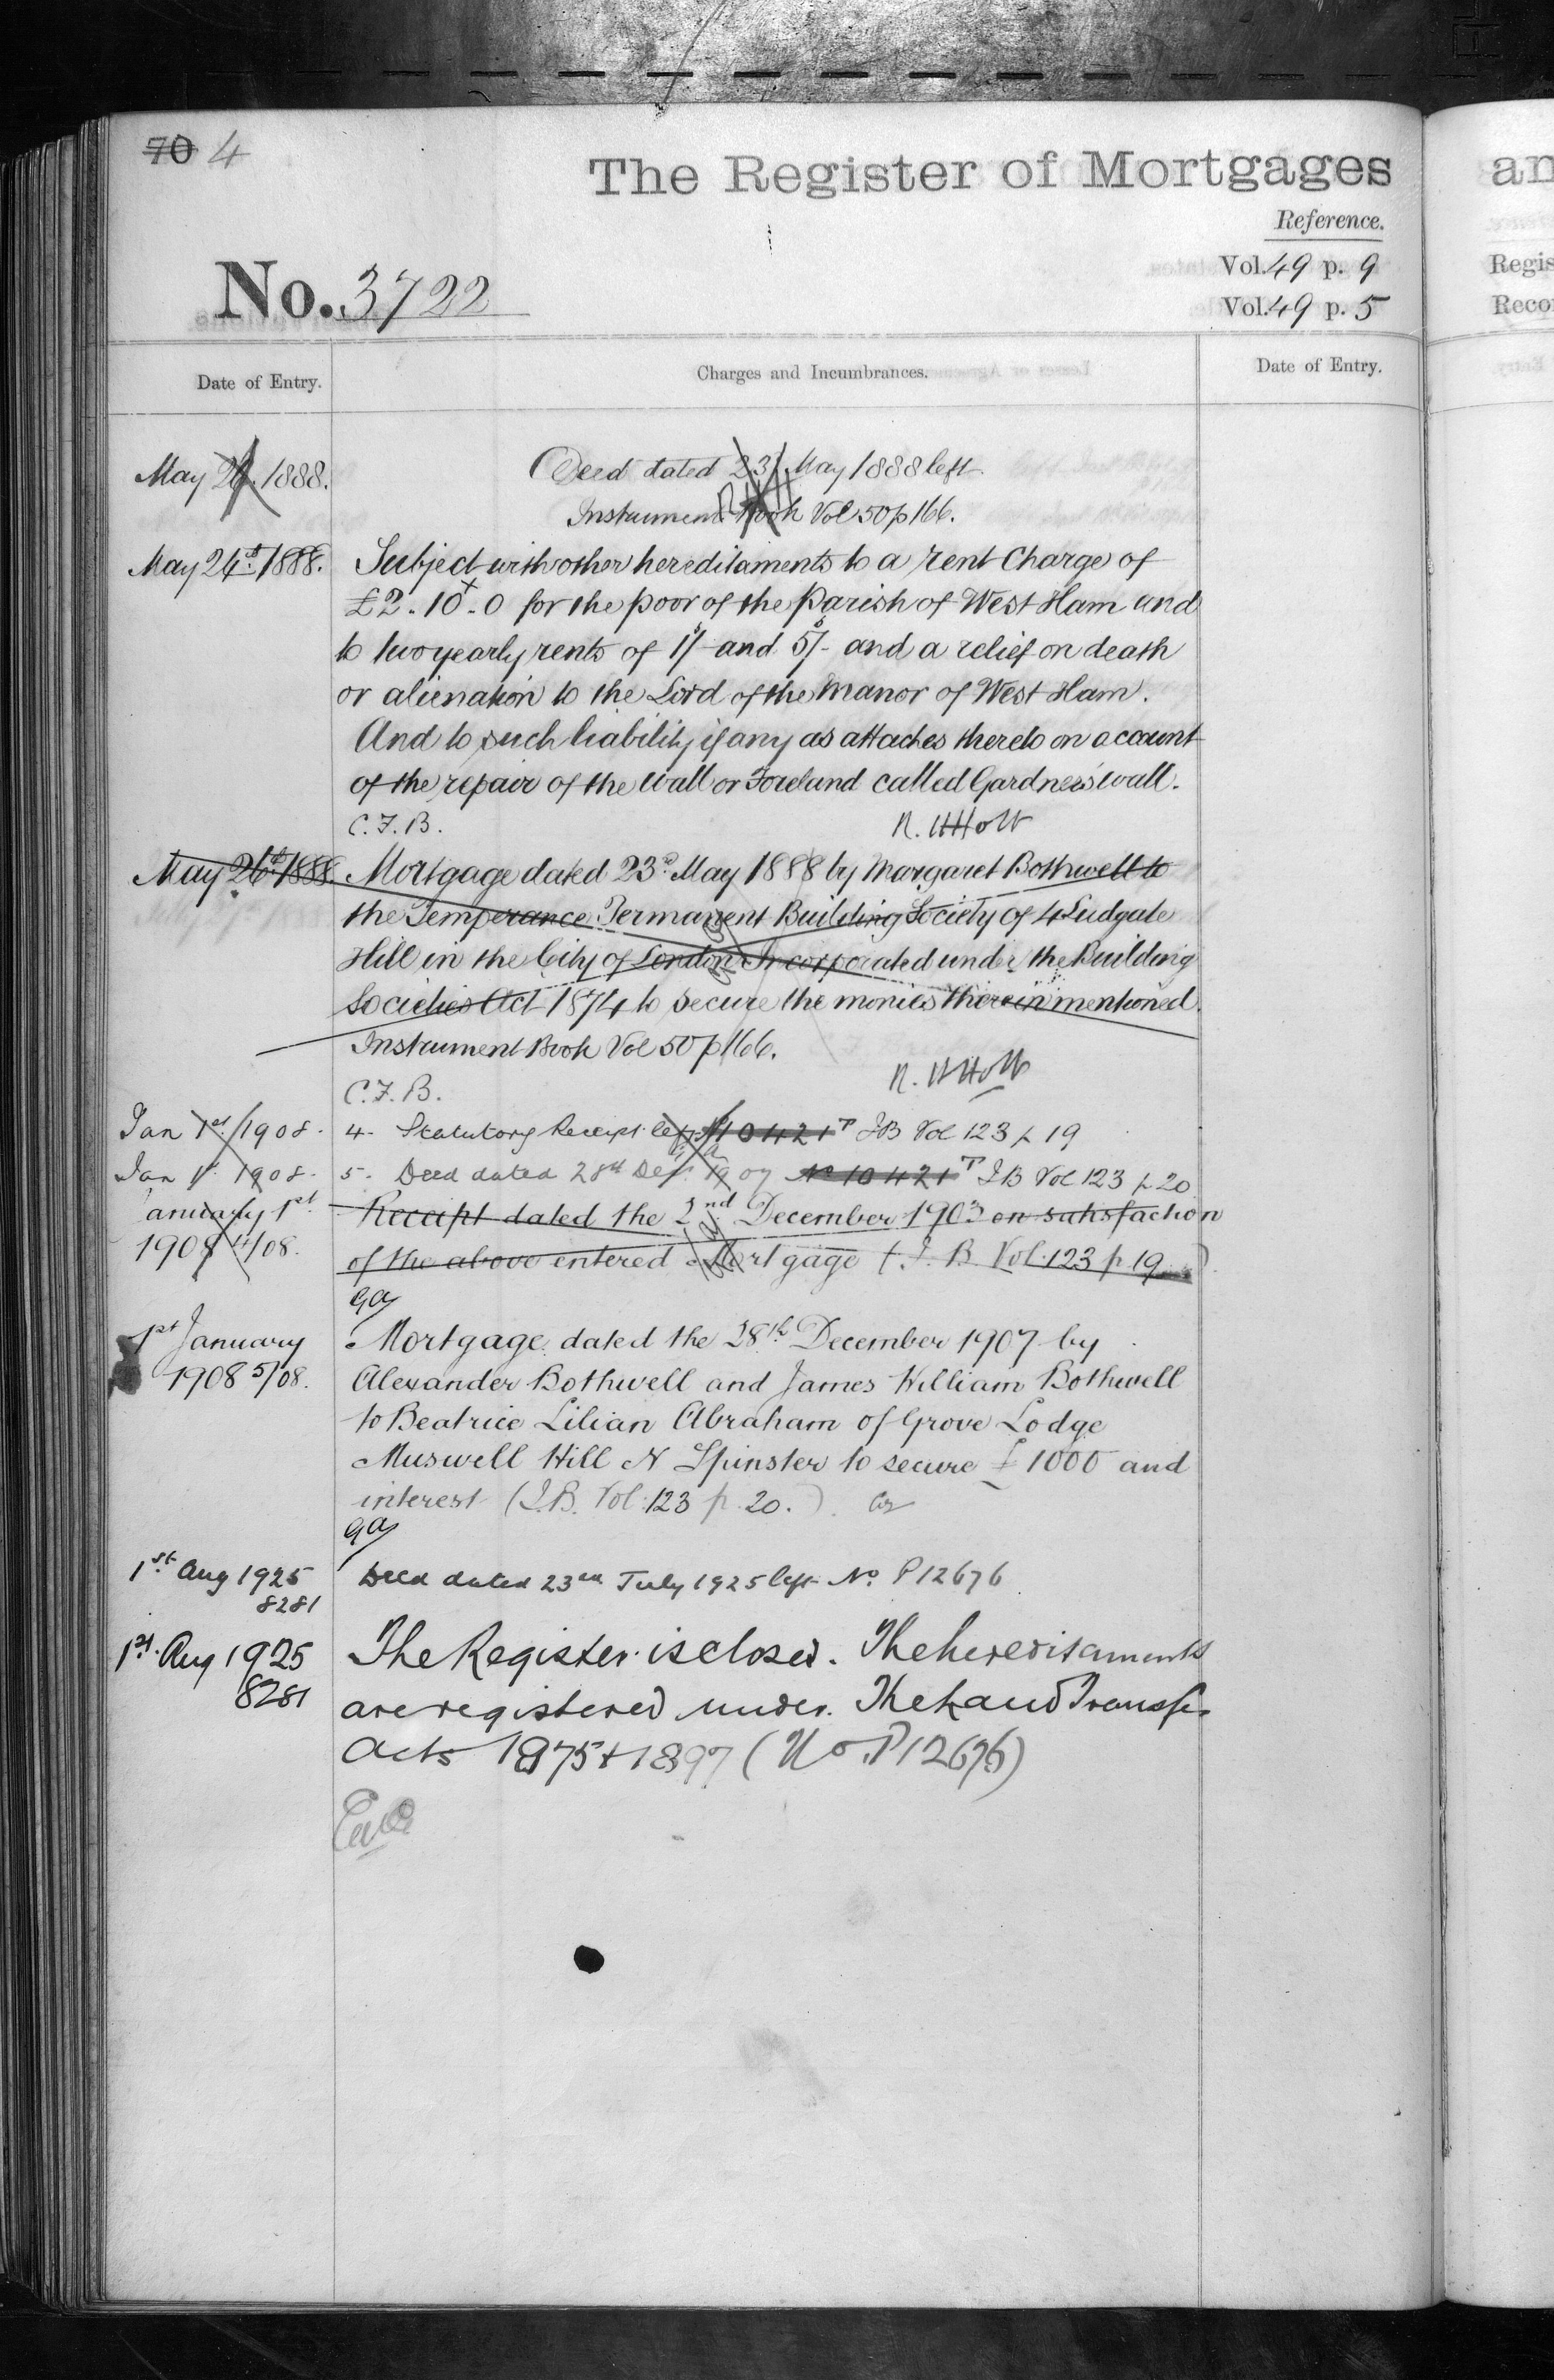 70 4
The Register of Mortgages
an
Reference.
No. 3722
Vol. 49 p. 9
Regis
Vol. 49 p. 5
Recor
Date of Entry.
Charges and Incumbrances.
Date of Entry.
May 26. 1888.
Deed dated 23 May 1888 left
Instrument Book Vol 50 p 166.
May 26th 1888.
Subject with other hereditaments to a rent Charge of
£2. 10. 0 for the poor of the Parish of West Ham and
to two yearly rents of 1/- and 5/- and a relief on death
or alienation to the Lord of the Manor of West Ham.
And to such liability if any as attaches thereto on account
of the repair of the Wall or Foreland called Gardners wall.
C.F.B.
R. H Holt
May 26th 1888.
Mortgage dated 23d May 1888 by Margaret Bothwell to
the Temperance Permanent Building Society of 4 Ludgate
Hill in the City of London Incorporated under the Building
Societies Act 1874 to secure the monies therein mentioned.
Instrument Book Vol 50 p 166.
C.F.B.
R. H Holt
Jan 1st 1908.
4. Statutory Receipt left No 10421 T IB Vol 123 p 19
Jan 1st 1908.
5. Deed dated 28th Dec 1907 No 10421 T IB Vol 123 p 20
January 1st
1908 4/08.
Receipt dated the 2nd December 1903 on satisfaction
of the above entered Mortgage (I. B. Vol. 123 p 19)
GA
1st January
1908 5/08.
Mortgage dated the 28th December 1907 by
Alexander Bothwell and James William Bothwell
to Beatrice Lilian Abraham of Grove Lodge
Muswell Hill N Spinster to secure £1000 and
interest (I.B. Vol. 123 p. 20.)
GA
1st Aug 1925
8281
Deed dated 23rd July 1925 left No P12676
1st Aug 1925
8281
The Register is closed. The hereditaments
are registered under The Land Transfer
Acts 1875 & 1897 (No P12676)